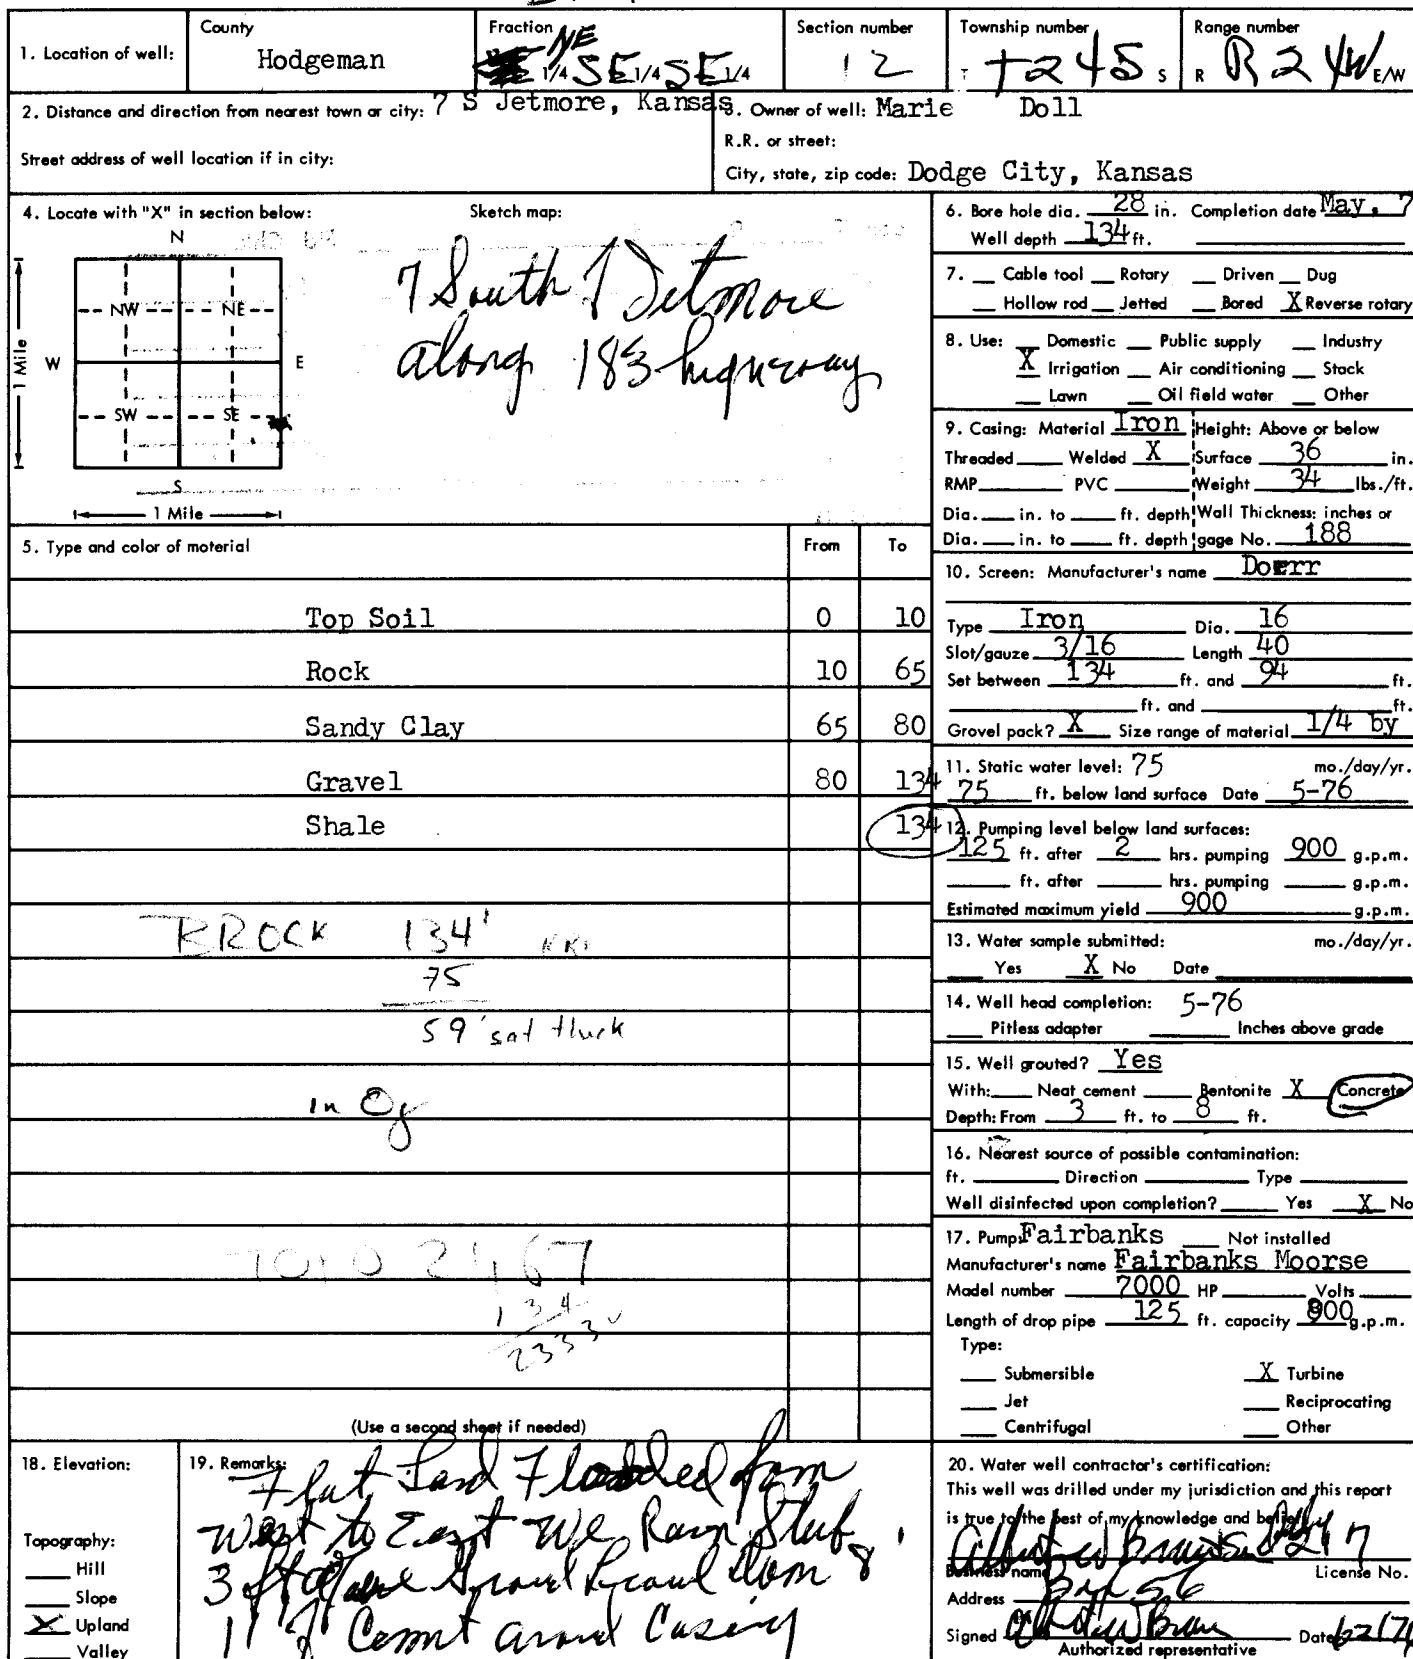 1. Location of well:
County
Hodgeman
Fraction
NE 1/4 SE 1/4 SE 1/4
Section number
12
Township number
T T24S S
Range number
R R24W E/W
2. Distance and direction from nearest town or city: 7 S Jetmore, Kansas
Street address of well location if in city:
3. Owner of well: Marie Doll
R.R. or street:
City, state, zip code: Dodge City, Kansas
4. Locate with "X" in section below:
Sketch map:
N
NW NE
W E
SW SE
S
1 Mile
1 Mile
7 South of Jetmore
along 183 highway
5. Type and color of material From To
Top Soil 0 10
Rock 10 65
Sandy Clay 65 80
Gravel 80 134
Shale 134
BROCK 134'
75
59' sat thick
in Og
2467
134
2333
(Use a second sheet if needed)
6. Bore hole dia. 28 in. Completion date May. 7
Well depth 134 ft.
7. __ Cable tool __ Rotary __ Driven __ Dug
__ Hollow rod __ Jetted __ Bored X Reverse rotary
8. Use: __ Domestic __ Public supply __ Industry
X Irrigation __ Air conditioning __ Stock
__ Lawn __ Oil field water __ Other
9. Casing: Material Iron Height: Above or below
Threaded ____ Welded X Surface 36 in.
RMP ____ PVC ____ Weight 34 lbs./ft.
Dia. ___ in. to ___ ft. depth Wall Thickness: inches or
Dia. ___ in. to ___ ft. depth gage No. 188
10. Screen: Manufacturer's name Doerr
Type Iron Dia. 16
Slot/gauze 3/16 Length 40
Set between 134 ft. and 94 ft.
____ ft. and ____ ft.
Gravel pack? X Size range of material 1/4 by
11. Static water level: 75 mo./day/yr.
75 ft. below land surface Date 5-76
12. Pumping level below land surfaces:
125 ft. after 2 hrs. pumping 900 g.p.m.
____ ft. after ____ hrs. pumping ____ g.p.m.
Estimated maximum yield 900 g.p.m.
13. Water sample submitted: mo./day/yr.
___ Yes X No Date ____
14. Well head completion: 5-76
___ Pitless adapter ____ Inches above grade
15. Well grouted? Yes
With: ___ Neat cement ___ Bentonite X Concrete
Depth: From 3 ft. to 8 ft.
16. Nearest source of possible contamination:
ft. ____ Direction ____ Type ____
Well disinfected upon completion? ___ Yes X No
17. Pump: Fairbanks ___ Not installed
Manufacturer's name Fairbanks Moorse
Model number 7000 HP ____ Volts ____
Length of drop pipe 125 ft. capacity 900 g.p.m.
Type:
___ Submersible X Turbine
___ Jet ___ Reciprocating
___ Centrifugal ___ Other
18. Elevation:
Topography:
___ Hill
___ Slope
X Upland
___ Valley
19. Remarks:
Flat Land Flooded from
West to East We
3
Cemnt around Casing
20. Water well contractor's certification:
This well was drilled under my jurisdiction and this report
is true to the best of my knowledge and belief.
217
Business name License No.
Address Box 56
Signed Date
Authorized representative